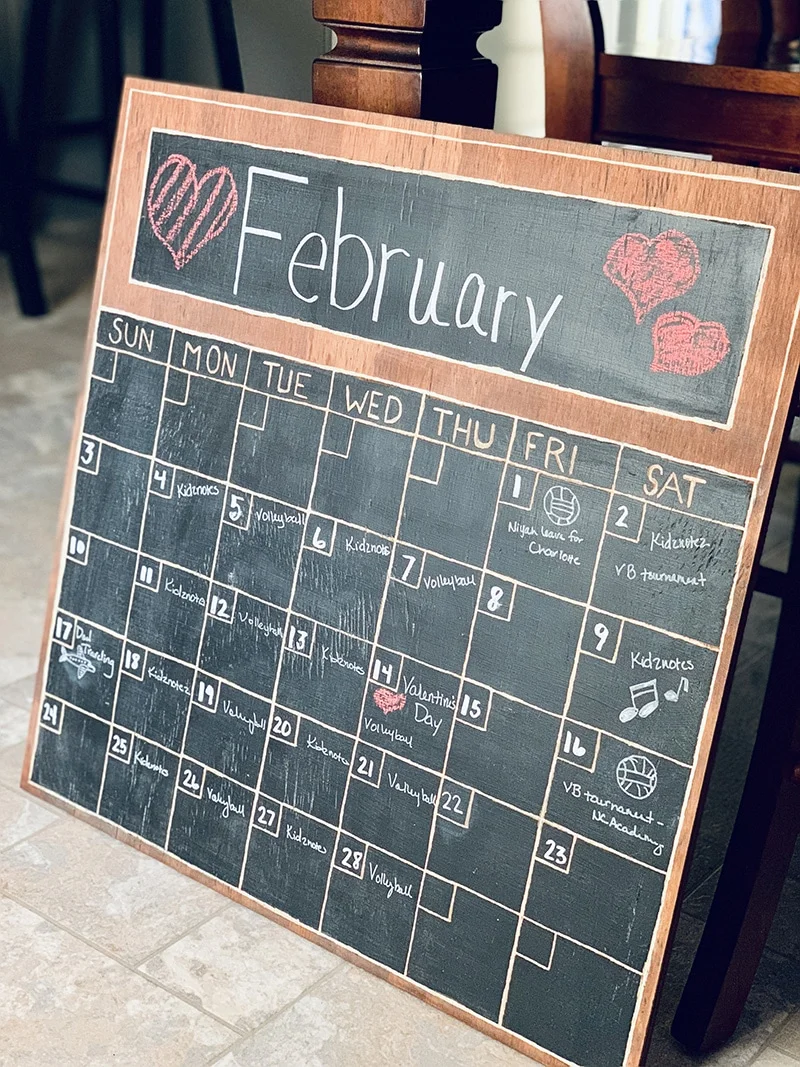 February
SUN MON TUE WED THU FRI SAT
1
Niyah leave for
Charlotte
2
Kidznotes
VB tournament
3
4 Kidznotes
5 Volleyball
6 Kidznotes
7 Volleyball
8
9
Kidznotes
10
11 Kidznotes
12 Volleyball
13 Kidznotes
14 Valentine's
Day
Volleyball
15
16
VB tournament -
NC Academy
17 Dad
Traveling
18 Kidznotes
19 Volleyball
20 Kidznotes
21 Volleyball
22
23
24
25 Kidznotes
26 Volleyball
27 Kidznotes
28 Volleyball